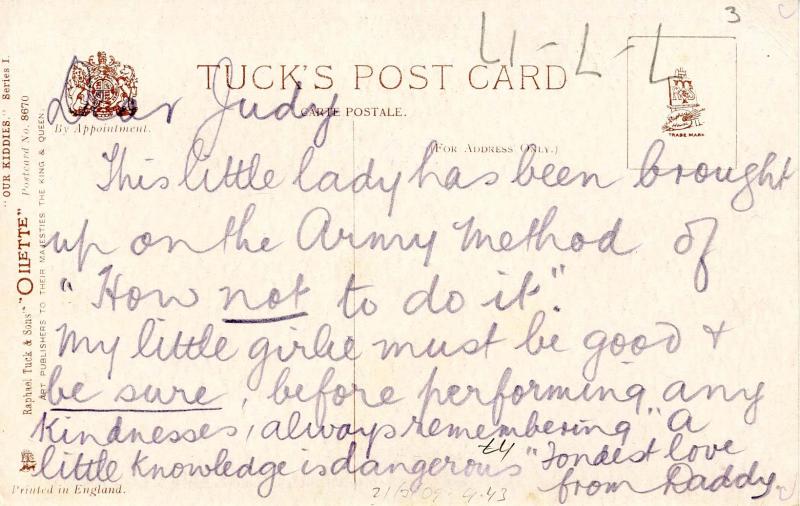 3
LI-L-L
TUCK'S POST CARD
CARTE POSTALE.
By Appointment.
(FOR ADDRESS ONLY.)
TRADE MARK
"OUR KIDDIES." Series I.
Postcard No. 8670
Raphael Tuck & Sons' "OILETTE"
ART PUBLISHERS TO THEIR MAJESTIES THE KING & QUEEN
Printed in England.
Dear Judy
This little lady has been brought
up on the Army method of
"How not to do it".
My little girlie must be good &
be sure, before performing any
kindnesses, always remembering "A
little knowledge is dangerous" Fondest love
from Daddy.